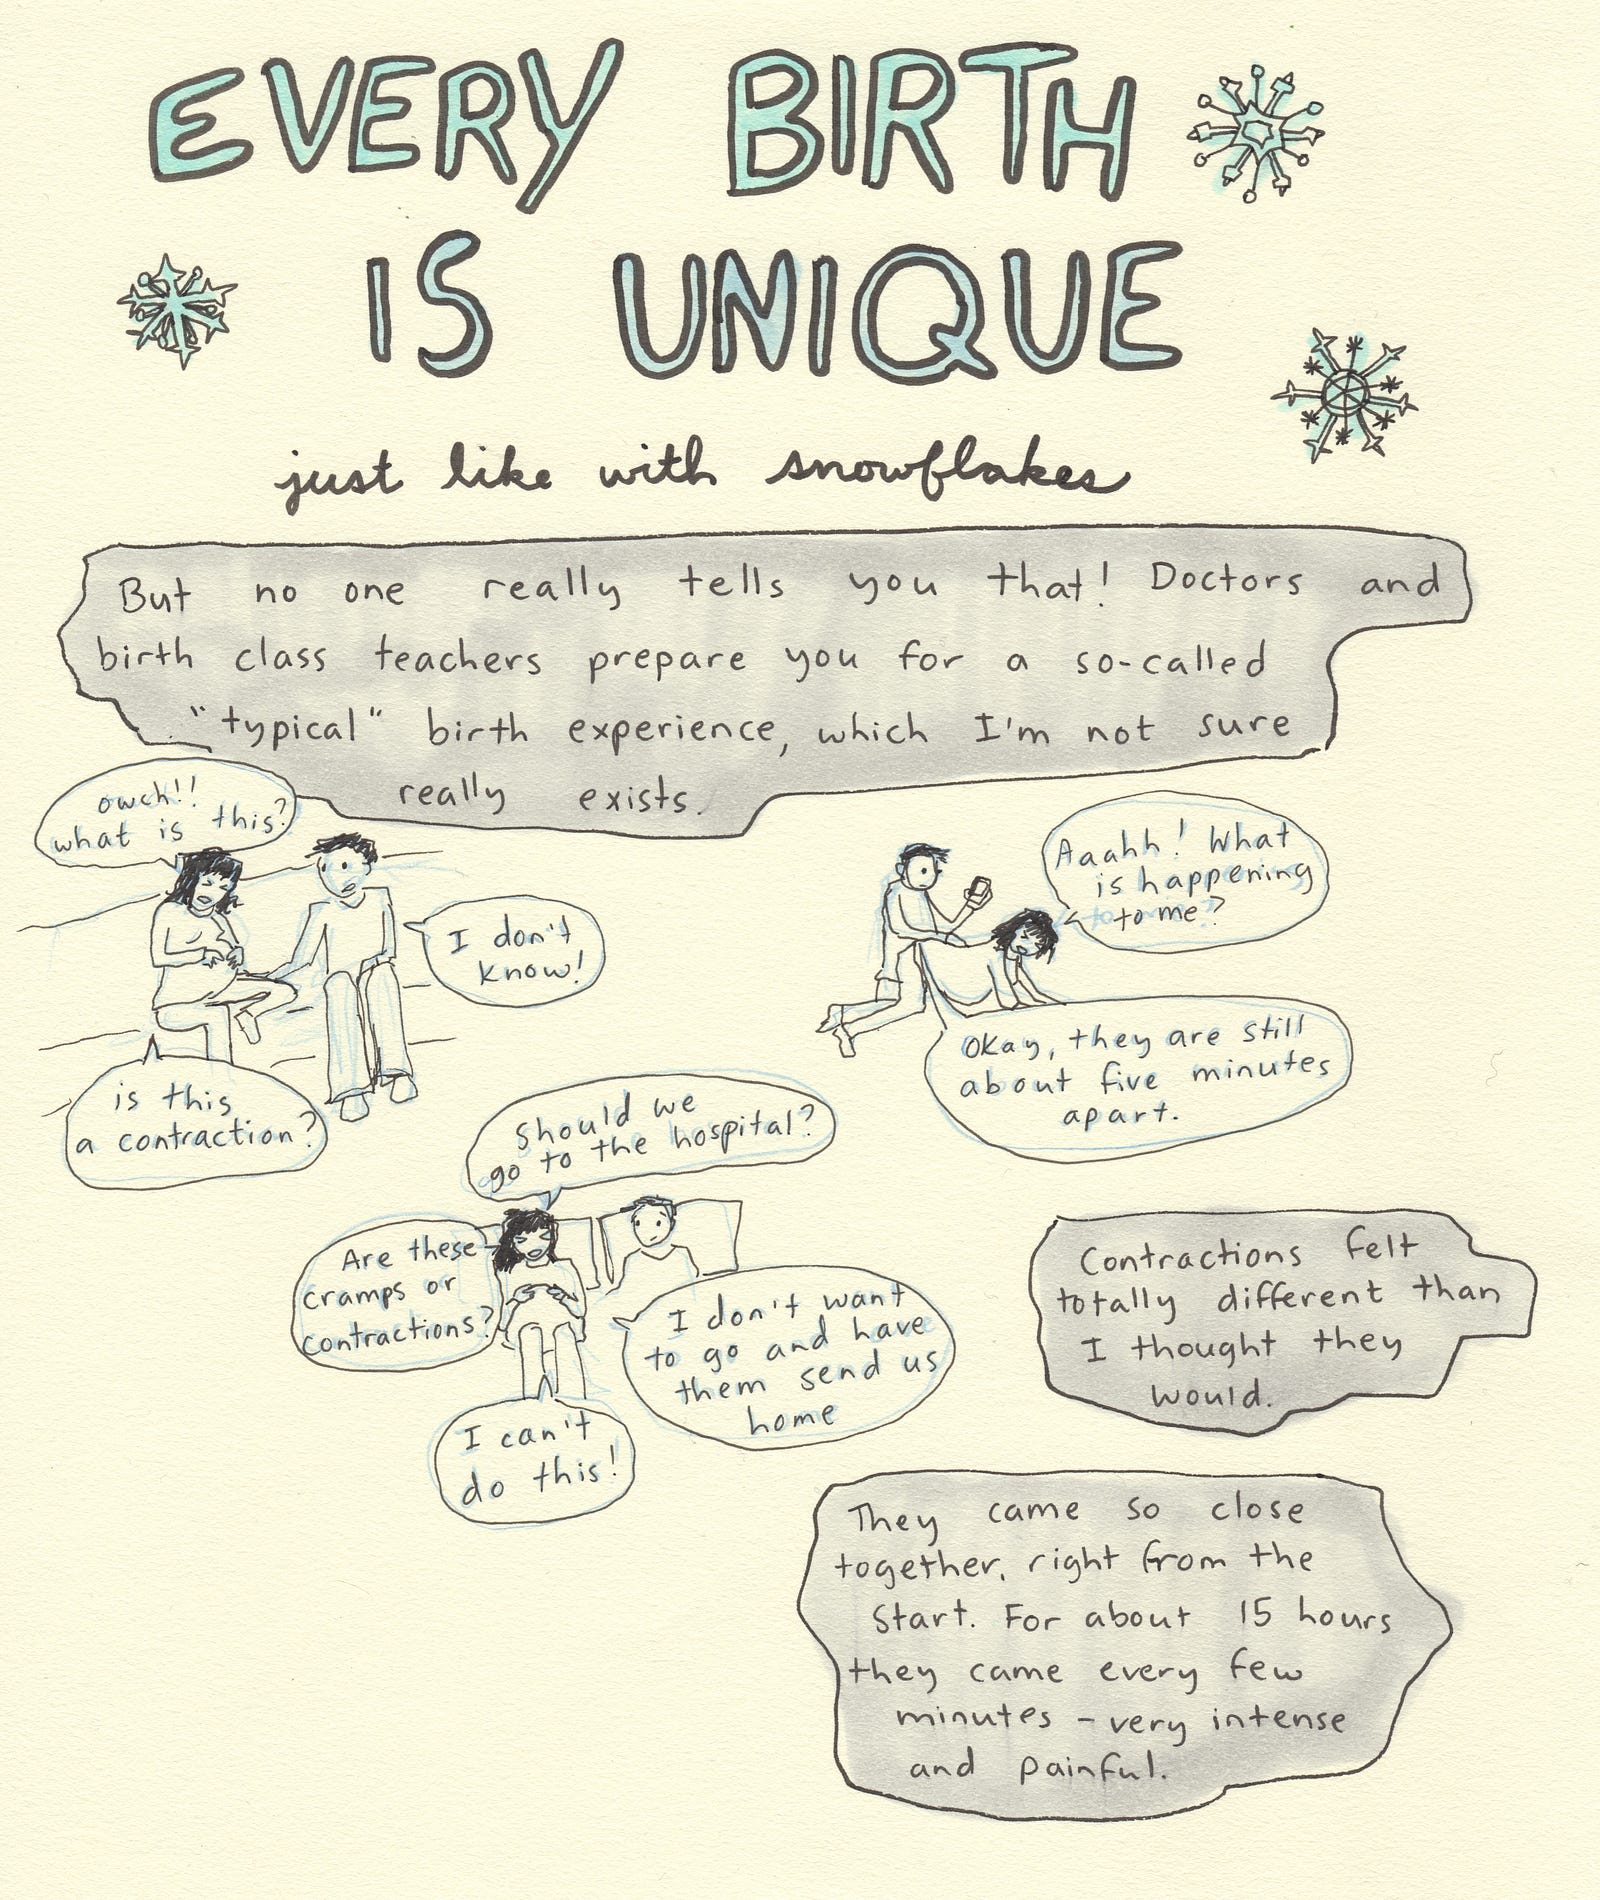 EVERY BIRTH
IS UNIQUE
just like with snowflakes
But no one really tells you that! Doctors and
birth class teachers prepare you for a so-called
"typical" birth experience, which I'm not sure
really exists.
owch!!
what is this?
I don't
know!
is this
a contraction?
Aaahh! What
is happening
to me?
Okay, they are still
about five minutes
apart.
Should we
go to the hospital?
Are these
cramps or
contractions?
I don't want
to go and have
them send us
home
I can't
do this!
Contractions felt
totally different than
I thought they
would.
They came so close
together, right from the
start. For about 15 hours
they came every few
minutes - very intense
and painful.